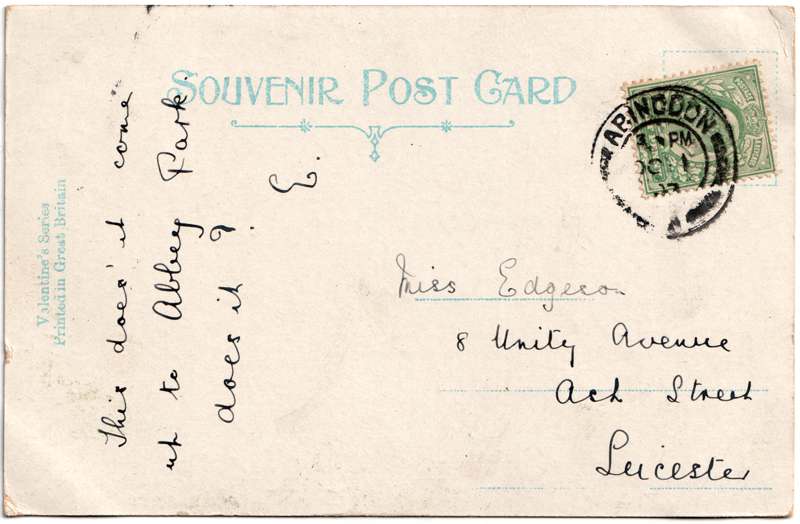 SOUVENIR POST CARD
Valentine's Series
Printed in Great Britain
This does't come
up to Abbey Park
does it?
E.
ABINGDON
PM
OC 1
07
Miss Edgeson
8 Unity Avenue
Ash Street
Leicester